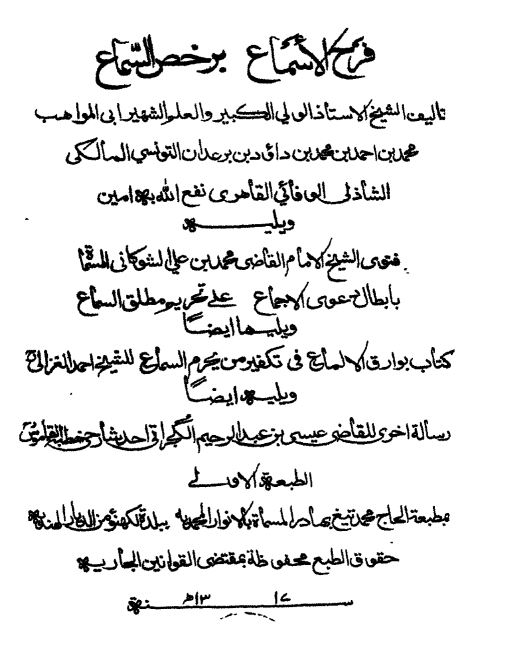 فرح الأسماع برخص السّماع
تاليف الشيخ الاستاذ الولي الكبير والعلم الشهير ابى المواهب
محمد بن احمد بن محمد بن داؤد بن برعدان التونسي المالكى
الشاذلى الوفائي القاهرى نفع الله به امين
ويليه
فتوى الشيخ الامام القاضى محمد بن علي الشوكانى المسماة
بابطال دعوى الاجماع على تحريم مطلق السماع
ويليها ايضاً
كتاب بوارق الالماع فى تكفير من يحرم السماع للشيخ احمد الغزالي
ويليه ايضاً
رسالة اخرى للقاضى عيسى بن عبد الرحيم الگجراتى احد شارحى خطبة القاموس
الطبعة الاولى
بمطبعة الحاج محمد تيغ بهادر المسماة بالانوار المحمدية ببلدة لكهنؤ من الديار الهندية
حقوق الطبع محفوظة بمقتضى القوانين الجارية
سنة ١٣١٧ھ